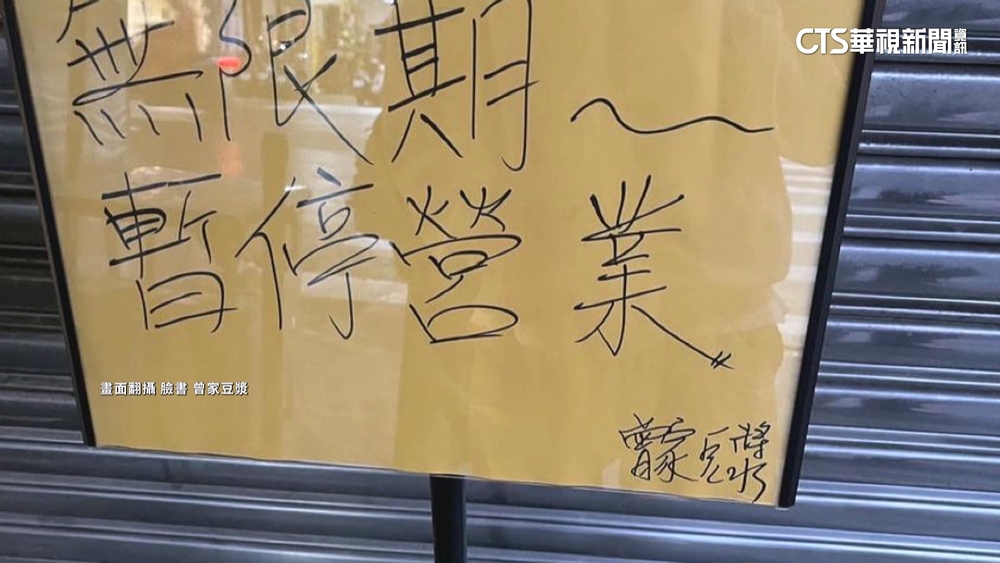 CTS華視新聞資訊
無限期～
暫停營業。
畫面翻攝 臉書 曾家豆漿
曾家豆漿